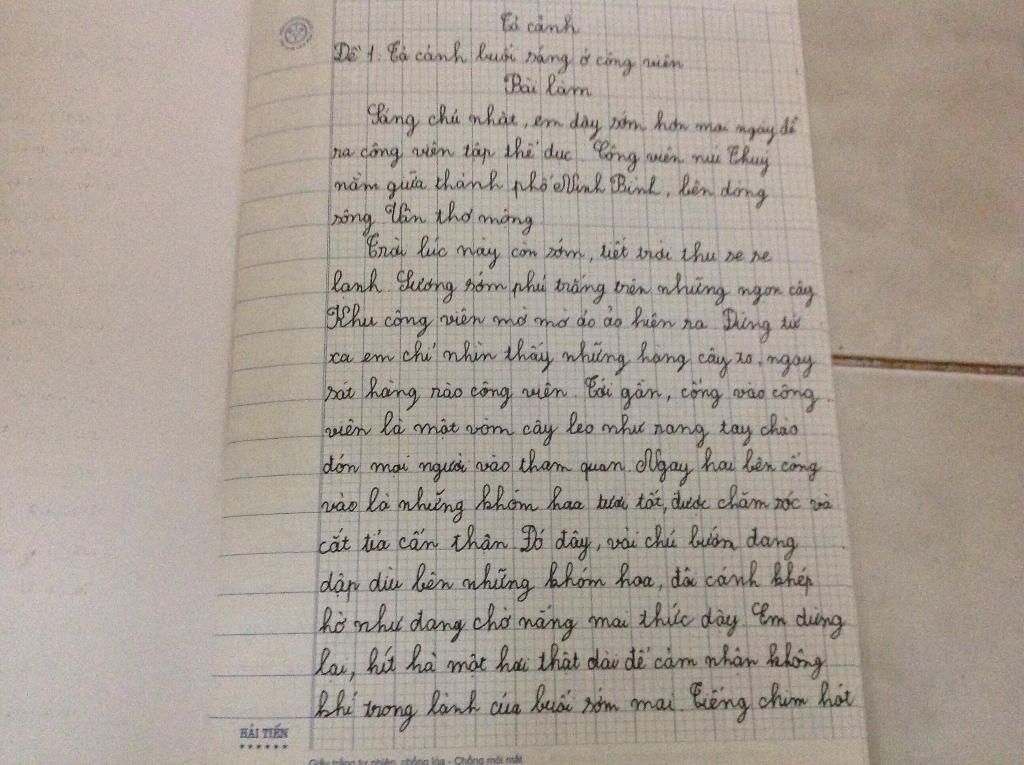 Tả cảnh
Đề 1: Tả cảnh buổi sáng ở công viên
Bài làm
Sáng chủ nhật, em dậy sớm hơn mọi ngày để
ra công viên tập thể dục. Công viên núi Thuý
nằm giữa thành phố Ninh Bình, bên dòng
sông Vân thơ mộng
Trời lúc này còn sớm, tiết trời thu se se
lạnh. Sương sớm phủ trắng trên những ngọn cây
Khu công viên mờ mờ ảo ảo hiện ra. Đứng từ
xa em chỉ nhìn thấy những hàng cây to, ngay
sát hàng rào công viên. Tới gần, cổng vào công
viên là một vòm cây leo như rang tay chào
đón mọi người vào tham quan. Ngay hai bên cổng
vào là những khóm hoa tươi tốt, được chăm sóc và
cắt tỉa cẩn thận. Đó đây, vài chú bướm đang
dập dìu bên những khóm hoa, đôi cánh khép
hờ như đang chờ nắng mai thức dậy. Em dừng
lại, hít hà một hơi thật dài để cảm nhận không
khí trong lành của buổi sớm mai. Tiếng chim hót
HẢI TIẾN
Giấy trắng tự nhiên, chống lóa - Chống mỏi mắt